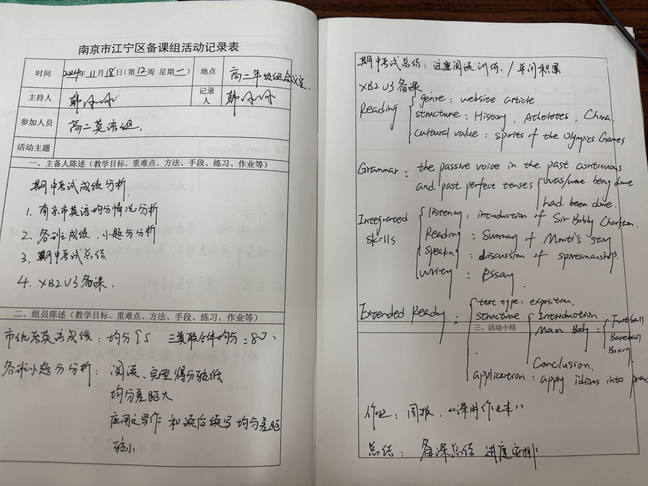 南京市江宁区备课组活动记录表
时间 2024年11月18日(第12周 星期一) 地点 高二年级组会议室
主持人 记录人
参加人员 高二英语组
活动主题
一、主备人陈述(教学目标、重难点、方法、手段、练习、作业等)
期中考试成绩分析
1. 南京市英语均分情况分析
2. 各班成绩、小题分分析
3. 期中考试总结
4. XB2U3备课
二、组员陈述(教学目标、重难点、方法、手段、练习、作业等)
英语成绩:均分95
各班小题分分析: 阅读、完型得分较低
均分差距大
应用文写作和读后续写均分差距
较小
期中考试总结:注重阅读训练/单词积累
XB2 U3备课
Reading genre: website article
structure: History, Atheletes, China
cultural value: sprits of the Olympics Games
Grammar: the passive voice in the past continuous
and past perfect tenses was/were being done
had been done.
Integrated skills listening: introduction of Sir Bobby Charlton
Reading: Summary of Monti's story
speaking: discussion of sportsmanship
writing: Essay
Extended Ready: text type: exposition.
structure Introduction
三、活动小结
Main Body: Football
Baseball
Boxing
Conclusion.
application: apply idioms into
作业:周报、"课时作业本"
总结: 备课总结 进度安排